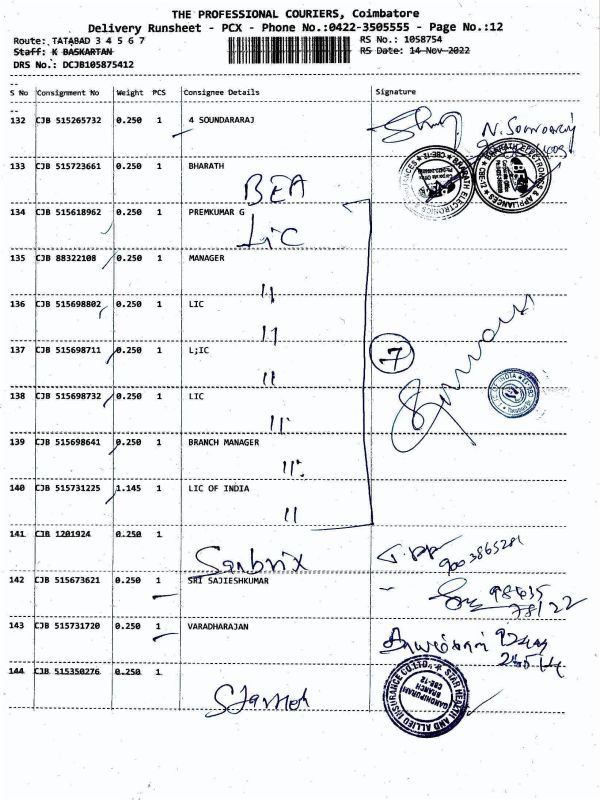 THE PROFESSIONAL COURIERS, Coimbatore
Delivery Runsheet - PCX - Phone No.:0422-3505555 - Page No.:12
Route: TATABAD 3 4 5 6 7
RS No.: 1058754
Staff: K BASKARTAN
RS Date: 14-Nov-2022
DRS No.: DCJB105875412
S No Consignment No Weight PCS Consignee Details Signature
132 CJB 515265732 0.250 1 4 SOUNDARARAJ
133 CJB 515723661 0.250 1 BHARATH
BEA
134 CJB 515618962 0.250 1 PREMKUMAR G
LIC
135 CJB 88322108 0.250 1 MANAGER
11
136 CJB 515698802 0.250 1 LIC
11
137 CJB 515698711 0.250 1 L;IC
7
11
138 CJB 515698732 0.250 1 LIC
11
139 CJB 515698641 0.250 1 BRANCH MANAGER
11
140 CJB 515731225 1.145 1 LIC OF INDIA
11
141 CJB 1201924 0.250 1
9003865281
142 CJB 515673621 0.250 1 SRI SAJIESHKUMAR
143 CJB 515731720 0.250 1 VARADHARAJAN
144 CJB 515350276 0.250 1
STAR HEALTH AND ALLIED INSURANCE CO.LTD.
GANDHIPURAM
BRANCH
CBE-12